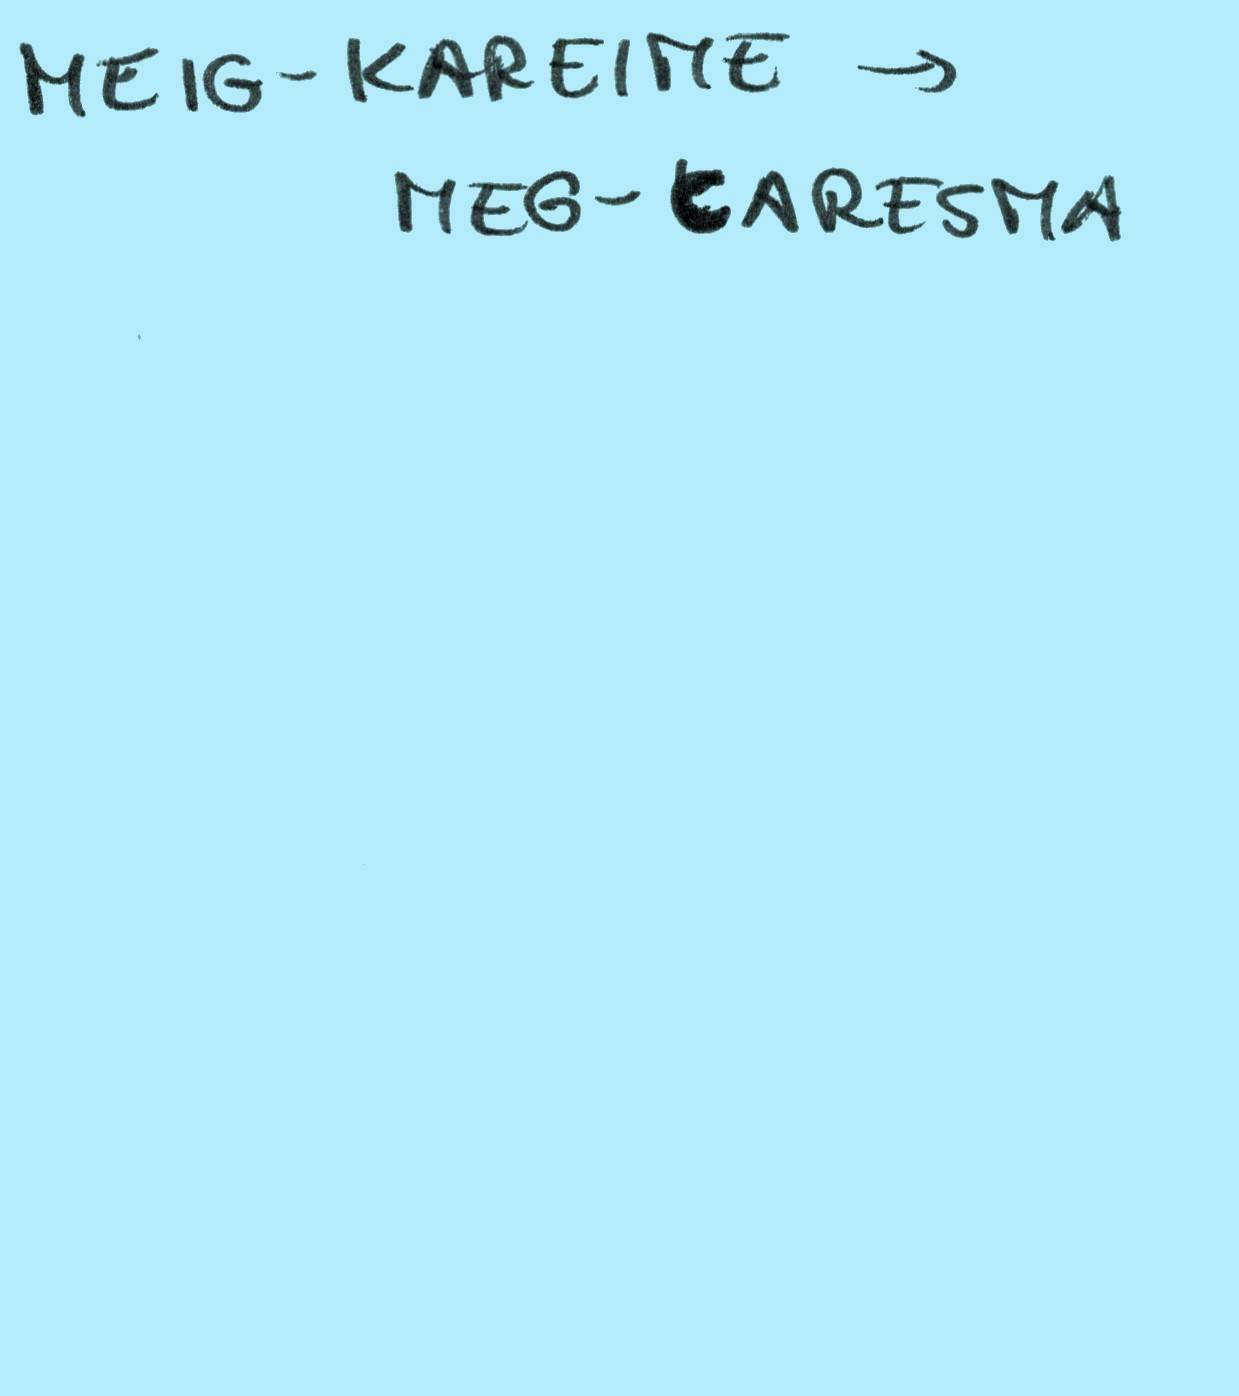 MEIG-KAREIME →
MEG-CARESMA